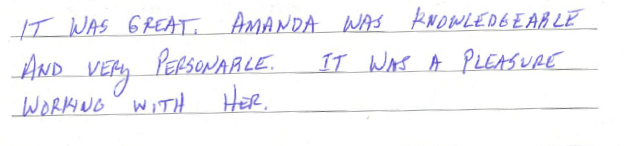 IT WAS GREAT. AMANDA WAS KNOWLEDGEABLE
AND VERY PERSONABLE. IT WAS A PLEASURE
WORKING WITH HER.